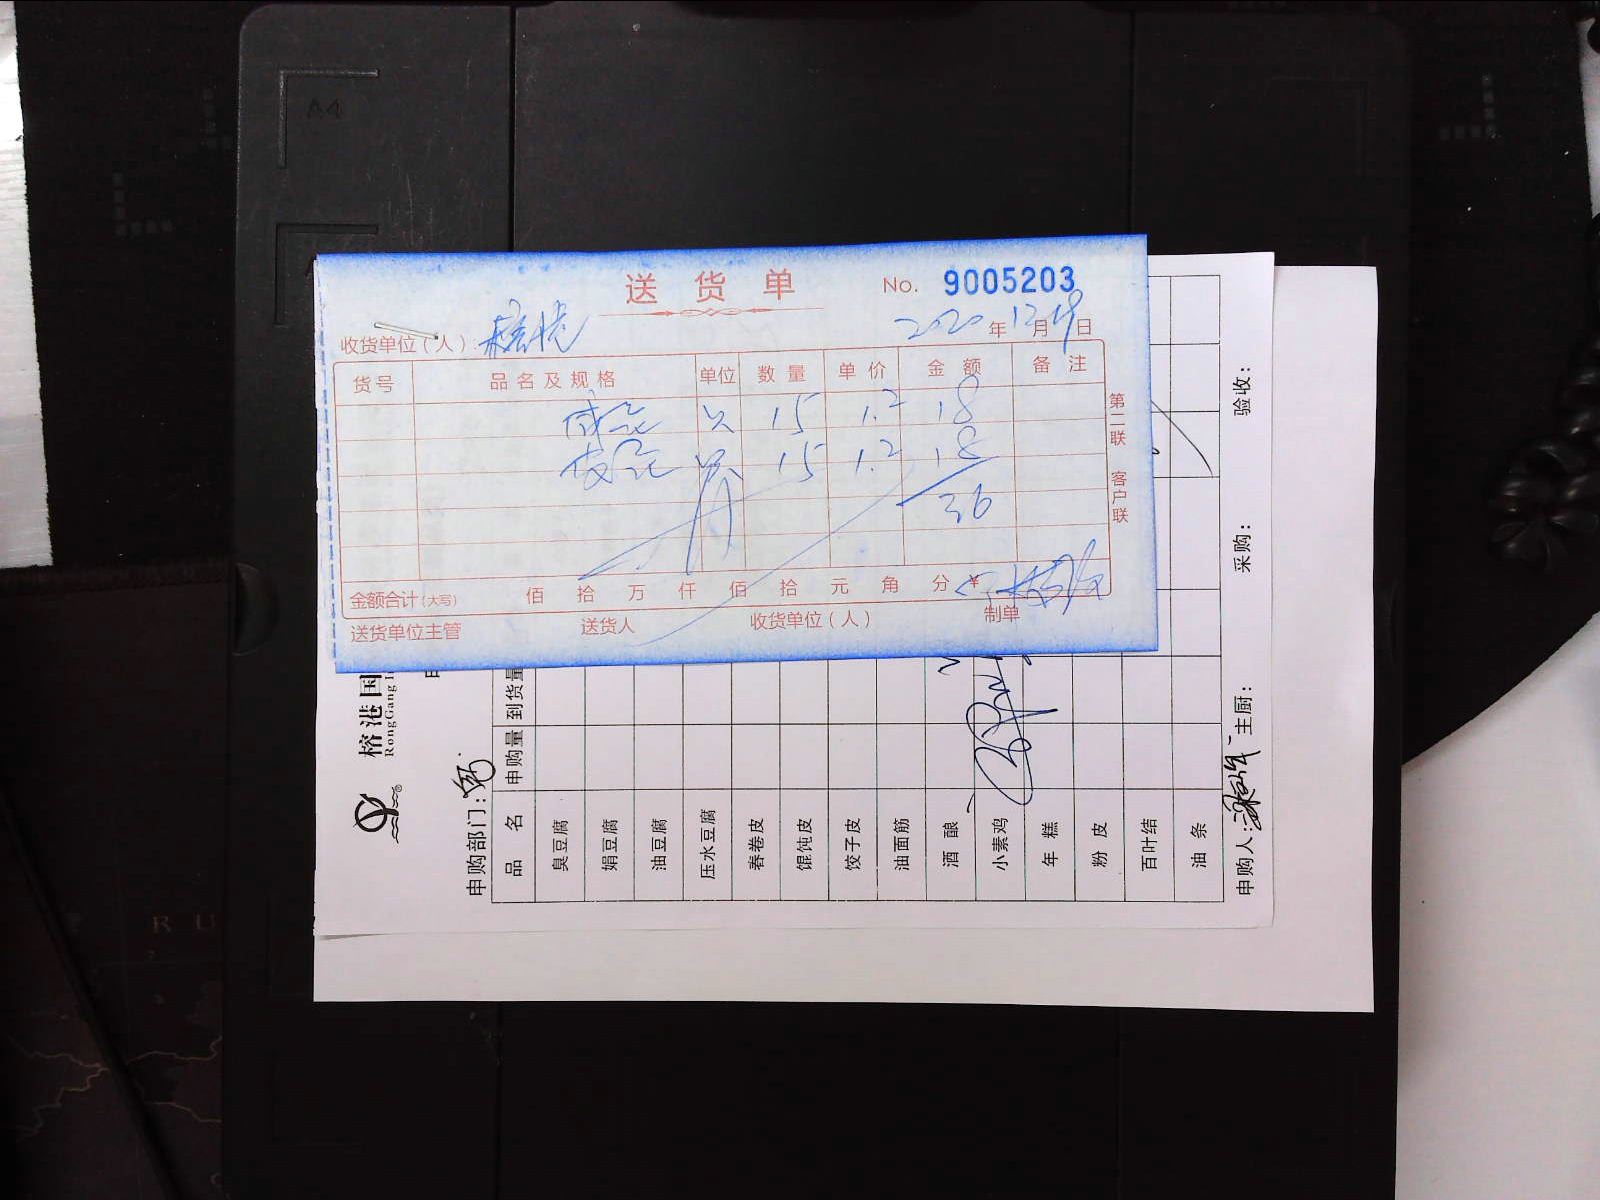 送货单
No. 9005203
收货单位(人):
2020年12月19日
货号 品名及规格 单位 数量 单价 金额 备注
只 15 1.2 18
15 1.2 18
36
金额合计(大写) 佰 拾 万 仟 佰 拾 元 角 分 ¥
送货单位主管 送货人 收货单位(人) 制单
第二联 客户联
榕港国
RongGang In
申购部门:
品名 申购量 到货量
臭豆腐
娟豆腐
油豆腐
压水豆腐
春卷皮
馄饨皮
饺子皮
油面筋
酒酿
小素鸡
年糕
粉皮
百叶结
油条
申购人: 主厨: 采购: 验收:
A4
R U